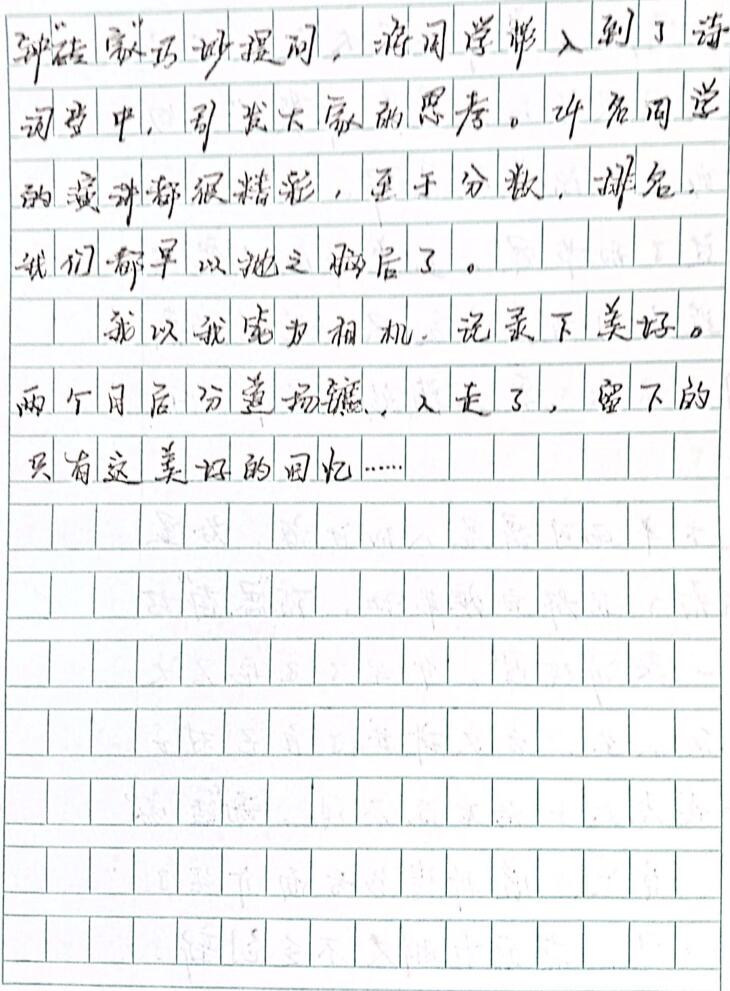 家巧妙提问，将同学带入到了诗
词当中，引发大家的思考。24名同学
的演讲都很精彩，至于分数，排名，
我们都早以抛之脑后了。
我以我家为相机，记录下美好。
两个月后分道扬镳，人走了，留下的
只有这美好的回忆……